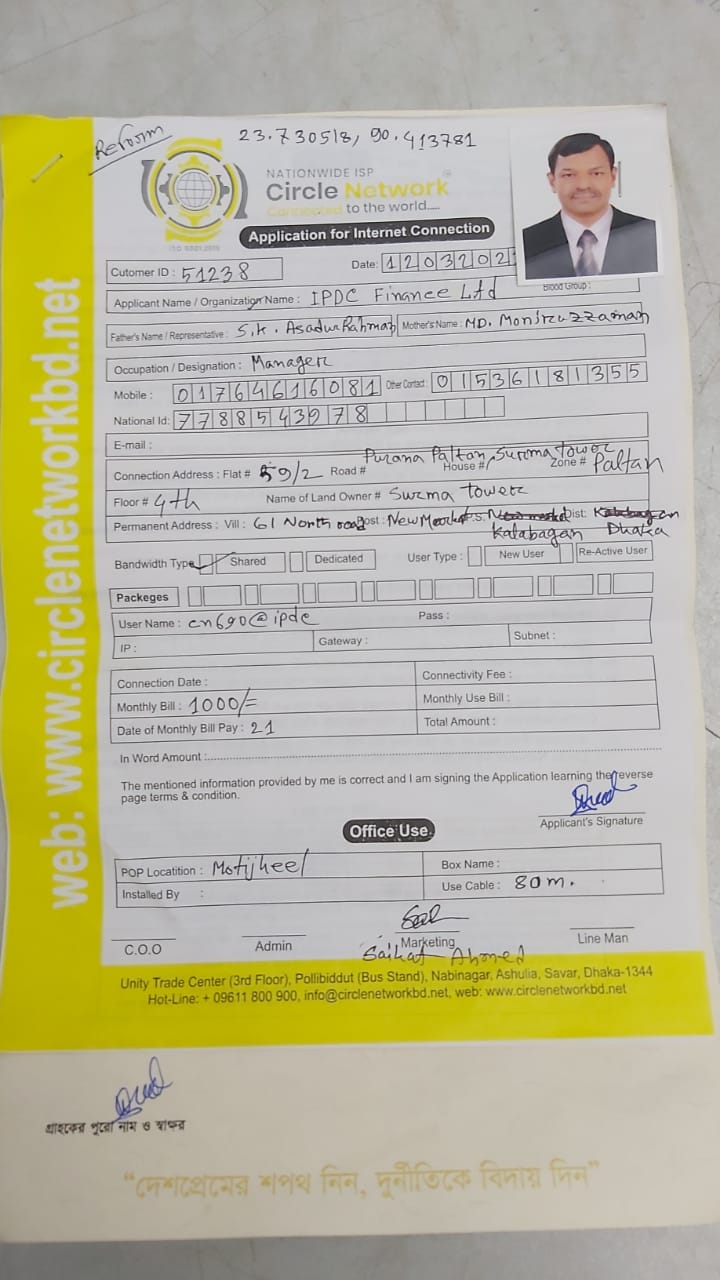 Reform
23.730518, 90.413781
NATIONWIDE ISP
Circle Network
Connected to the world....
ISO 9001:2015
Application for Internet Connection
Cutomer ID : 51238
Date: 1203202
Applicant Name / Organization Name : IPDC Finance Ltd
Blood Group :
Father's Name / Representative : S.K. Asadur Rahman
Mother's Name : MD. Moniruzzaman
Occupation / Designation : Manager
Mobile : 01764616081 Other Contact : 01536181355
National Id: 7788543978
E-mail :
Connection Address : Flat # 59/2 Road # Purana Paltan House # Surma tower Zone # Paltan
Floor # 4th Name of Land Owner # Surma tower
Permanent Address : Vill : 61 North road Post : New Market P.S: Kalabagan Dist: Dhaka
Bandwidth Type Shared Dedicated User Type : New User Re-Active User
Packeges
User Name : cn690@ipdc Pass :
IP : Gateway : Subnet :
Connection Date : Connectivity Fee :
Monthly Bill : 1000/= Monthly Use Bill :
Date of Monthly Bill Pay : 21 Total Amount :
In Word Amount :
The mentioned information provided by me is correct and I am signing the Application learning the reverse
page terms & condition.
Applicant's Signature
Office Use.
POP Locatition : Motijheel Box Name :
Installed By : Use Cable : 80m.
C.O.O Admin Marketing Line Man
Saikat Ahmed
Unity Trade Center (3rd Floor), Pollibiddut (Bus Stand), Nabinagar, Ashulia, Savar, Dhaka-1344
Hot-Line: + 09611 800 900, info@circlenetworkbd.net, web: www.circlenetworkbd.net
web: www.circlenetworkbd.net
গ্রাহকের পুরো নাম ও স্বাক্ষর
“দেশপ্রেমের শপথ নিন, দুর্নীতিকে বিদায় দিন”